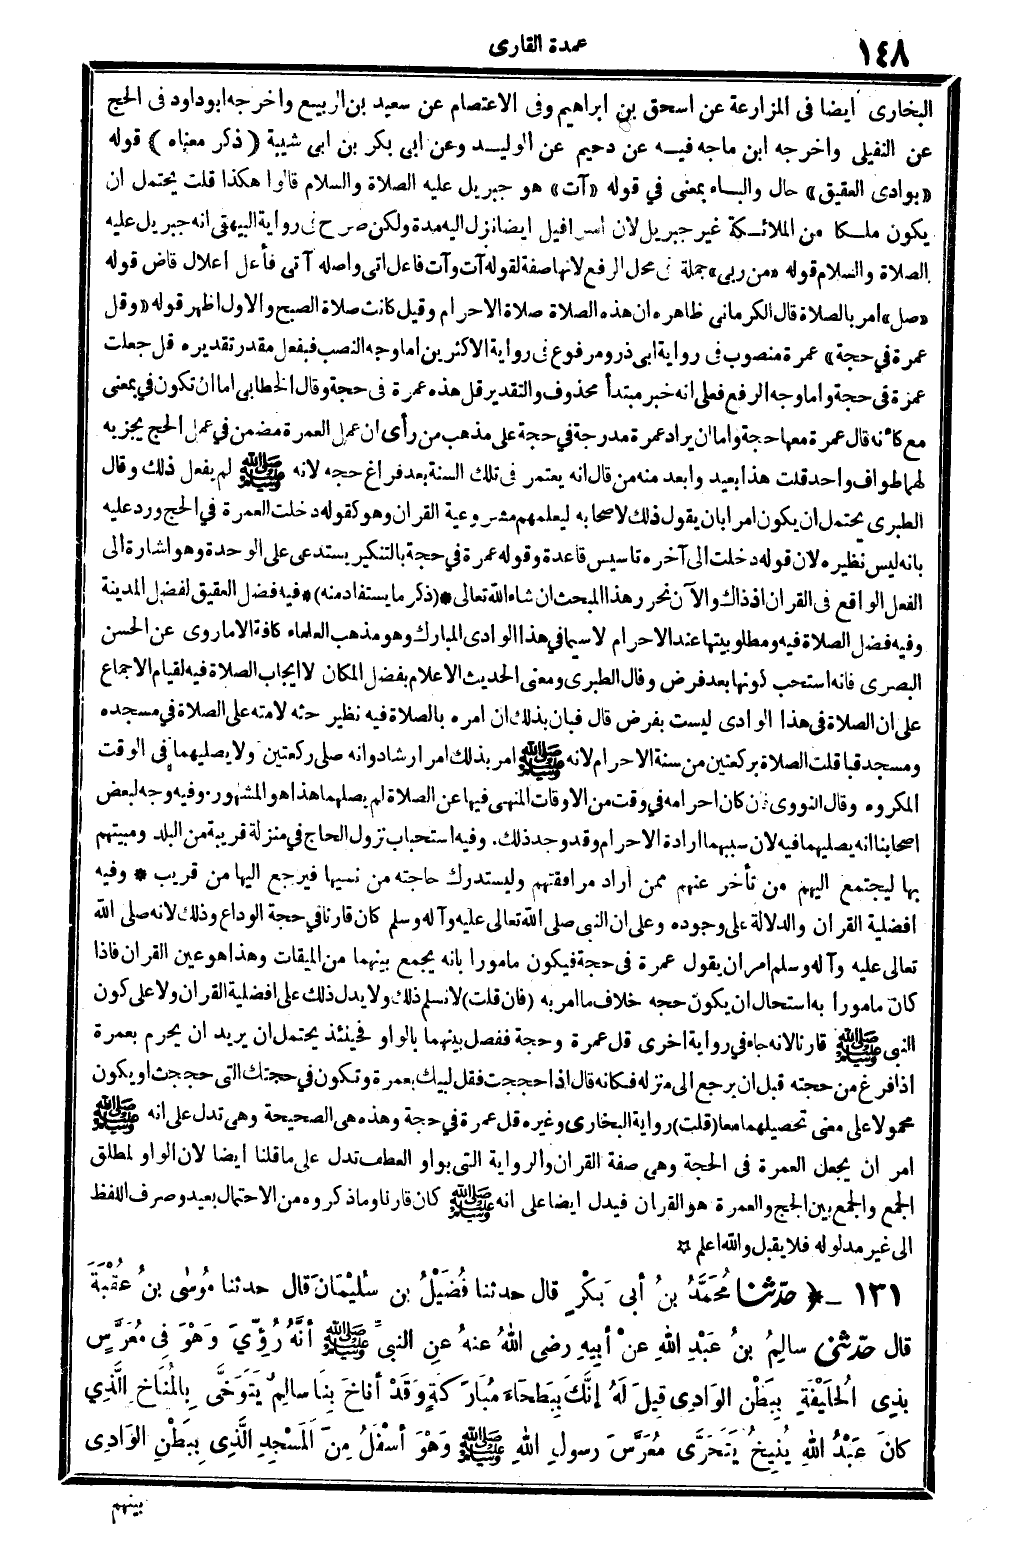 ١٤٨
عمدة القارى
البخارى ايضا فى المزارعة عن اسحق بن ابراهيم وفى الاعتصام عن سعيد بن الربيع واخرجه ابو داود فى الحج
عن النفيلى واخرجه ابن ماجه فيه عن دحيم عن الوليد وعن ابى بكر بن ابى شيبة (ذكر معناه) قوله
«بوادى العقيق» حال والباء بمعنى في قوله «آت» هو جبريل عليه الصلاة والسلام قالوا هكذا قلت يحتمل ان
يكون ملكا من الملائكة غير جبريل لان اسرافيل ايضا نزل اليه مدة ولكن صرح فى رواية البيهقى انه جبريل عليه
الصلاة والسلام قوله «من ربى» جملة فى محل الرفع لانها صفة لقوله آت وآت فاعل اتى واصله آتى فأعل اعلال قاض قوله
«صل» امر بالصلاة قال الكرمانى ظاهره ان هذه الصلاة صلاة الاحرام وقيل كانت صلاة الصبح والاول اظهر قوله «وقل
عمرة في حجة» عمرة منصوب فى رواية ابى ذر ومرفوع فى رواية الاكثرين اما وجه النصب فبفعل مقدر تقديره قل جعلت
عمرة فى حجة واما وجه الرفع فعلى انه خبر مبتدأ محذوف والتقدير قل هذه عمرة فى حجة وقال الخطابى اما ان تكون في بمعنى
مع كأنه قال عمرة معها حجة واما ان يراد عمرة مدرجة في حجة على مذهب من رأى ان عمل العمرة مضمن في عمل الحج يجزيه
لهما طواف واحد قلت هذا بعيد وابعد منه من قال انه يعتمر فى تلك السنة بعد فراغ حجه لانه ﷺ لم يفعل ذلك وقال
الطبرى يحتمل ان يكون امرا بان يقول ذلك لاصحابه ليعلمهم مشروعية القران وهو كقوله دخلت العمرة في الحج ورد عليه
بانه ليس نظيره لان قوله دخلت الى آخره تاسيس قاعدة وقوله عمرة في حجة بالتنكير يستدعى على الوحدة وهو اشارة الى
الفعل الواقع فى القران اذ ذاك والآن نحرر هذا المبحث ان شاء الله تعالى * (ذكر ما يستفاد منه) * فيه فضل العقيق لفضل المدينة
وفيه فضل الصلاة فيه ومطلوبيتها عند الاحرام لا سيما في هذا الوادى المبارك وهو مذهب العلماء كافة الا ماروى عن الحسن
البصرى فانه استحب كونها بعد فرض وقال الطبرى ومعنى الحديث الاعلام بفضل المكان لا ايجاب الصلاة فيه لقيام الاجماع
على ان الصلاة فى هذا الوادى ليست بفرض قال فبان بذلك ان امره بالصلاة فيه نظير حثه لامته على الصلاة في مسجده
ومسجد قبا قلت الصلاة بركعتين من سنة الاحرام لانه ﷺ امر بذلك امر ارشاد وانه صلى ركعتين ولا يصليهما في الوقت
المكروه وقال النووى فان كان احرامه في وقت من الاوقات المنهى فيها عن الصلاة لم يصلهما هذا هو المشهور. وفيه وجه لبعض
اصحابنا انه يصليهما فيه لان سببهما ارادة الاحرام وقد وجد ذلك. وفيه استحباب نزول الحاج في منزلة قريبة من البلد ومبيتهم
بها ليجتمع اليهم من تأخر عنهم ممن أراد مرافقتهم وليستدرك حاجته من نسيها فيرجع اليها من قريب * وفيه
افضلية القران والدلالة على وجوده وعلى ان النبى صلى الله تعالى عليه وآله وسلم كان قارنا في حجة الوداع وذلك لانه صلى الله
تعالى عليه وآله وسلم امر ان يقول عمرة فى حجة فيكون مامورا بانه يجمع بينهما من الميقات وهذا هو عين القران فاذا
كان مامورا به استحال ان يكون حجه خلاف ما امر به (فان قلت) لا نسلم ذلك ولا يدل ذلك على افضلية القران ولا على كون
النبى ﷺ قارنا لانه جاء في رواية اخرى قل عمرة وحجة ففصل بينهما بالواو فحينئذ يحتمل ان يريد ان يحرم بعمرة
اذا فرغ من حجته قبل ان يرجع الى منزله فكانه قال اذا حججت فقل لبيك بعمرة وتكون في حجتك التى حججت او يكون
محمولا على معنى تحصيلهما معا (قلت) رواية البخارى وغيره قل عمرة في حجة وهذه هى الصحيحة وهى تدل على انه ﷺ
امر ان يجعل العمرة فى الحجة وهى صفة القران والرواية التى بواو العطف تدل على ما قلنا ايضا لان الواو لمطلق
الجمع والجمع بين الحج والعمرة هو القران فيدل ايضا على انه ﷺ كان قارنا وما ذكروه من الاحتمال بعيد وصرف اللفظ
الى غير مدلوله فلا يقبل والله اعلم ☆
١٣١ - ﴿ حدّثنا مُحَمَّدُ بنُ أبى بَكْرٍ قال حدثنا فُضَيْلُ بن سُلَيْمَانَ قال حدثنا مُوسَى بنُ عُقْبَةَ
قال حدّثنى سالِمُ بنُ عَبْدِ اللهِ عنْ أبِيهِ رضى اللهُ عنهُ عنِ النبىِّ ﷺ أنَّهُ رُؤِّىَ وَهْوَ فى مُعَرَّسٍ
بِذِى الحُلَيْفَةِ بِبَطْنِ الوَادِى قِيلَ لَهُ إنَّكَ بِبَطحَاءَ مُبَارَكَةٍ وَقَدْ أناخَ بِنَا سالِمٌ يَتَوَخَّى بِالمُنَاخِ الَّذِي
كانَ عَبْدُ اللهِ يُنِيخُ يَتَحَرَّى مُعَرَّسَ رسولِ اللهِ ﷺ وَهْوَ أسْفَلُ مِنَ المَسْجِدِ الَّذِى بِبَطْنِ الوَادِى
بينهم